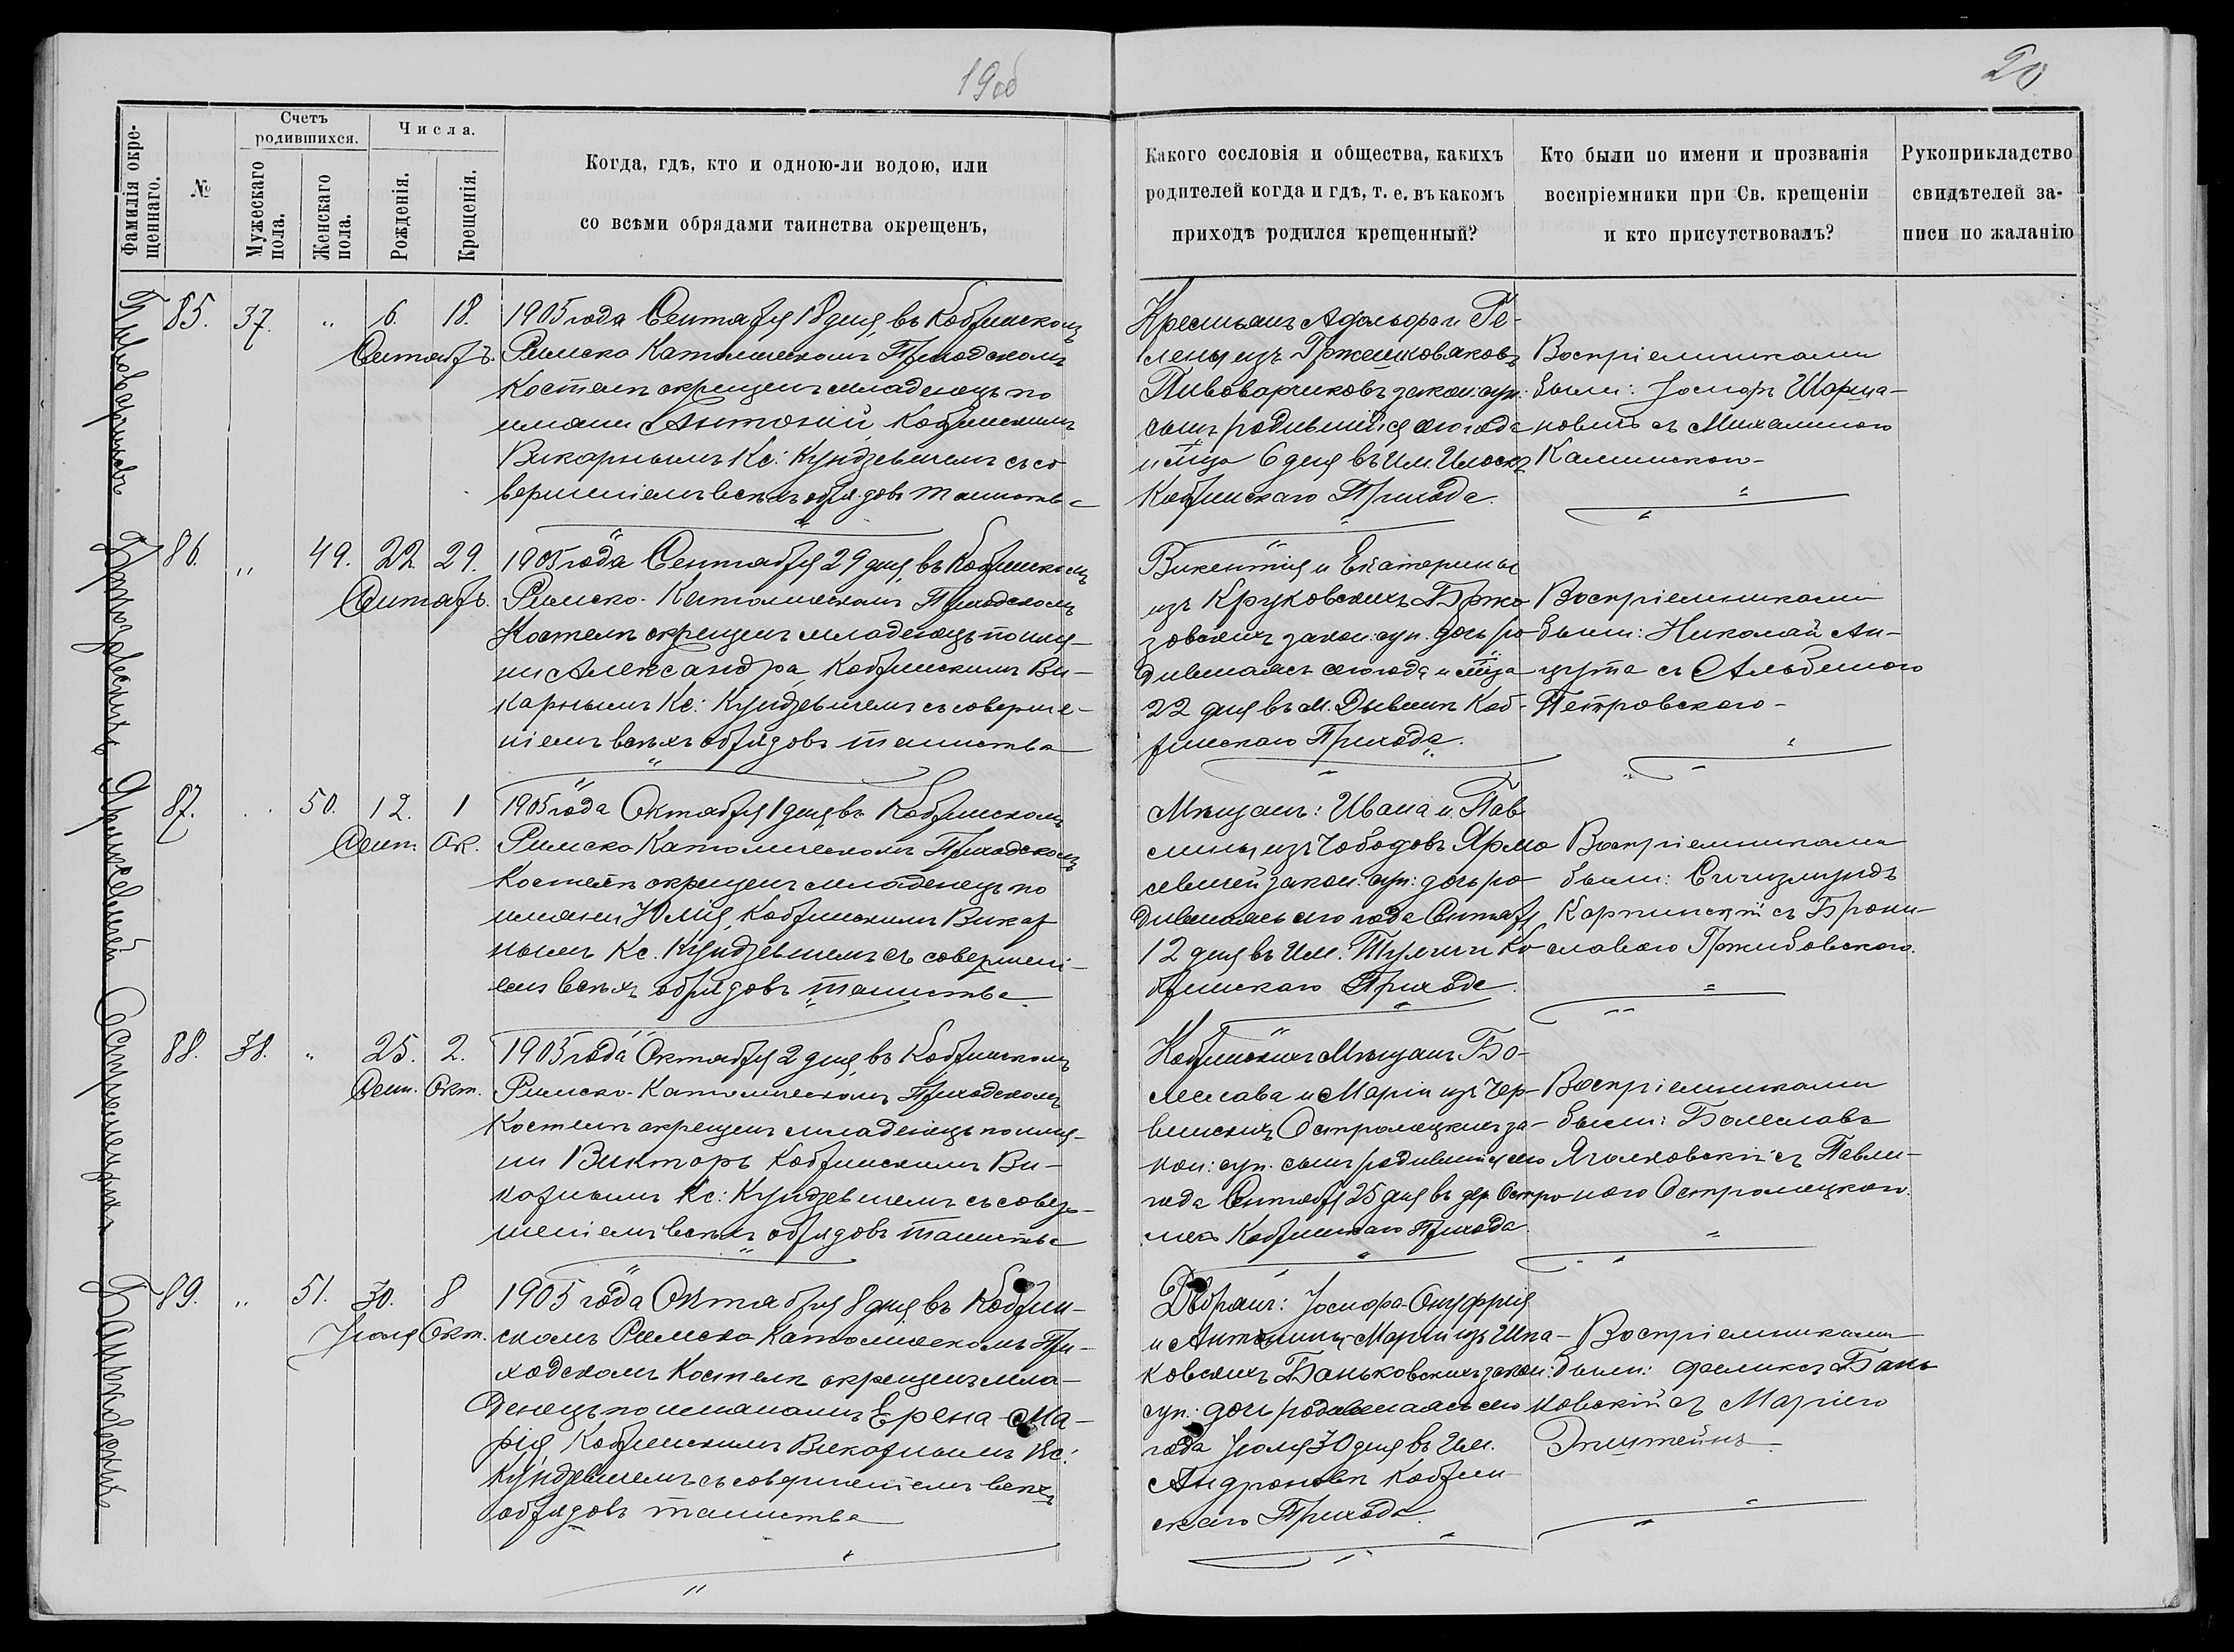 19об
20
Фамилія окре-
щеннаго.
№
Счетъ
родившихся.
Мужескаго
пола.
Женскаго
пола.
Числа.
Рожденія.
Крещенія.
Когда, гдѣ, кто и одною-ли водою, или
со всѣми обрядами таинства окрещенъ,
Какого сословія и общества, какихъ
родителей когда и гдѣ, т. е. въ какомъ
приходѣ родился крещенный?
Кто были по имени и прозванія
воспріемники при Св. крещеніи
и кто присутствовалъ?
Рукоприкладство
свидѣтелей за-
писи по жаланію
85. 37. " 6. 18.
Сентябр.
1905 года Сентября 18 дня, въ Кобринскомъ
Римско Католическомъ Приходскомъ
Костелѣ окрещенъ младенецъ по
имени Антоній, Кобринскимъ
Викарнымъ Кс: Кундзевичемъ съ со
вершеніемъ всѣхъ обрядовъ таинства
Крестьянъ Адольфа и Ге-
лены изъ Гржешковяковъ
Пивоварчиковъ закон: суп:
сынъ родившійся сего года
и мца 6 дня въ Им.
Кобринскаго Прихода.
Воспріемниками
были: Іосифъ
съ Михалиною
Калинскою
86. " 49. 22. 29.
Сентябр.
1905 года Сентября 29 дня, въ Кобринскомъ
Римско-Католическомъ Приходскомъ
Костелѣ окрещенъ младенецъ по име-
ни Александра, Кобринскимъ Ви-
карнымъ Кс: Кундзевичемъ съ соверше-
ніемъ всѣхъ обрядовъ таинства
Викентія и Екатерины
изъ Круковскихъ Бржо
зовскихъ закон: суп. дочь ро-
дившаяся сего года и мца
22 дня въ м. Дывинѣ Коб-
ринскаго Прихода.
Воспріемниками
были: Николай Ан-
цута съ Альбиною
Петровскою
87. 50. 12. 1
Сент. Ок.
1905 года Октября 1 дня въ Кобринскомъ
Римско Католическомъ Приходскомъ
Костелѣ окрещенъ младенецъ по
имени Юлія, Кобринскимъ Викар
нымъ Кс. Кундзевичемъ съ совершені-
емъ всѣхъ обрядовъ таинства
Мѣщанъ: Ивана и Пав
лины изъ Чободовъ Ярмо
севичей закон. суп: дочь ро
дившаяся сего года Сентябр
12 дня въ Им. Ко
бринскаго Прихода.
Воспріемниками
были: Сигизмундъ
Карпинскій съ Брони-
славою Гржибовскою.
88. 38. " 25. 2.
Сент. Окт.
1905 года Октября 2 дня, въ Кобринскомъ
Римско-Католическомъ Приходскомъ
Костелѣ окрещенъ младенецъ по име-
ни Викторъ Кобринскимъ Ви-
карнымъ Кс: Кундзевичемъ съ совер-
шеніемъ всѣхъ обрядовъ таинства
Кобринскихъ Мѣщанъ Бо-
леслава и Маріи изъ Чер-
винскихъ Остромецкихъ за-
кон: суп. сынъ родившійся сего
года Сентября 25 дня въ дер. Остро
Кобринскаго Прихода
Воспріемниками
были: Болеславъ
Ягалковскій съ Павли-
ною Остромецкою.
89. " 51. 30. 8
Іюля Окт.
1905 года Октября 8 дня, въ Кобрин-
скомъ Римско Католическомъ При-
ходскомъ Костелѣ окрещенъ мла-
денецъ по именамъ Ерена-Ма-
рія, Кобринскимъ Викарнымъ Кс:
Кундзевичемъ съ совершеніемъ всѣхъ
обрядовъ таинства
Дворянъ: Іосифа-Онуфрія
и Антонины-Маріи изъ Шпа-
ковскихъ Баньковскихъ закон:
суп: дочь родившаяся сего
года Іюля 30 дня въ Им.
Андроновѣ Кобрин
скаго Прихода.
Воспріемниками
были: Феликсъ Бань
ковскій съ Маріею
Эпштейнъ
Пивоварчикъ
Бржозовскихъ
Ярмосевичей
Остромецкихъ
Баньковскихъ